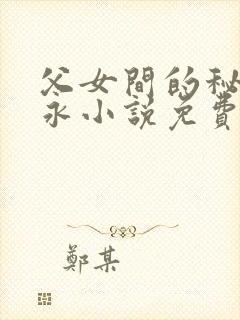 父女間的秘
永小説免費
鄭某